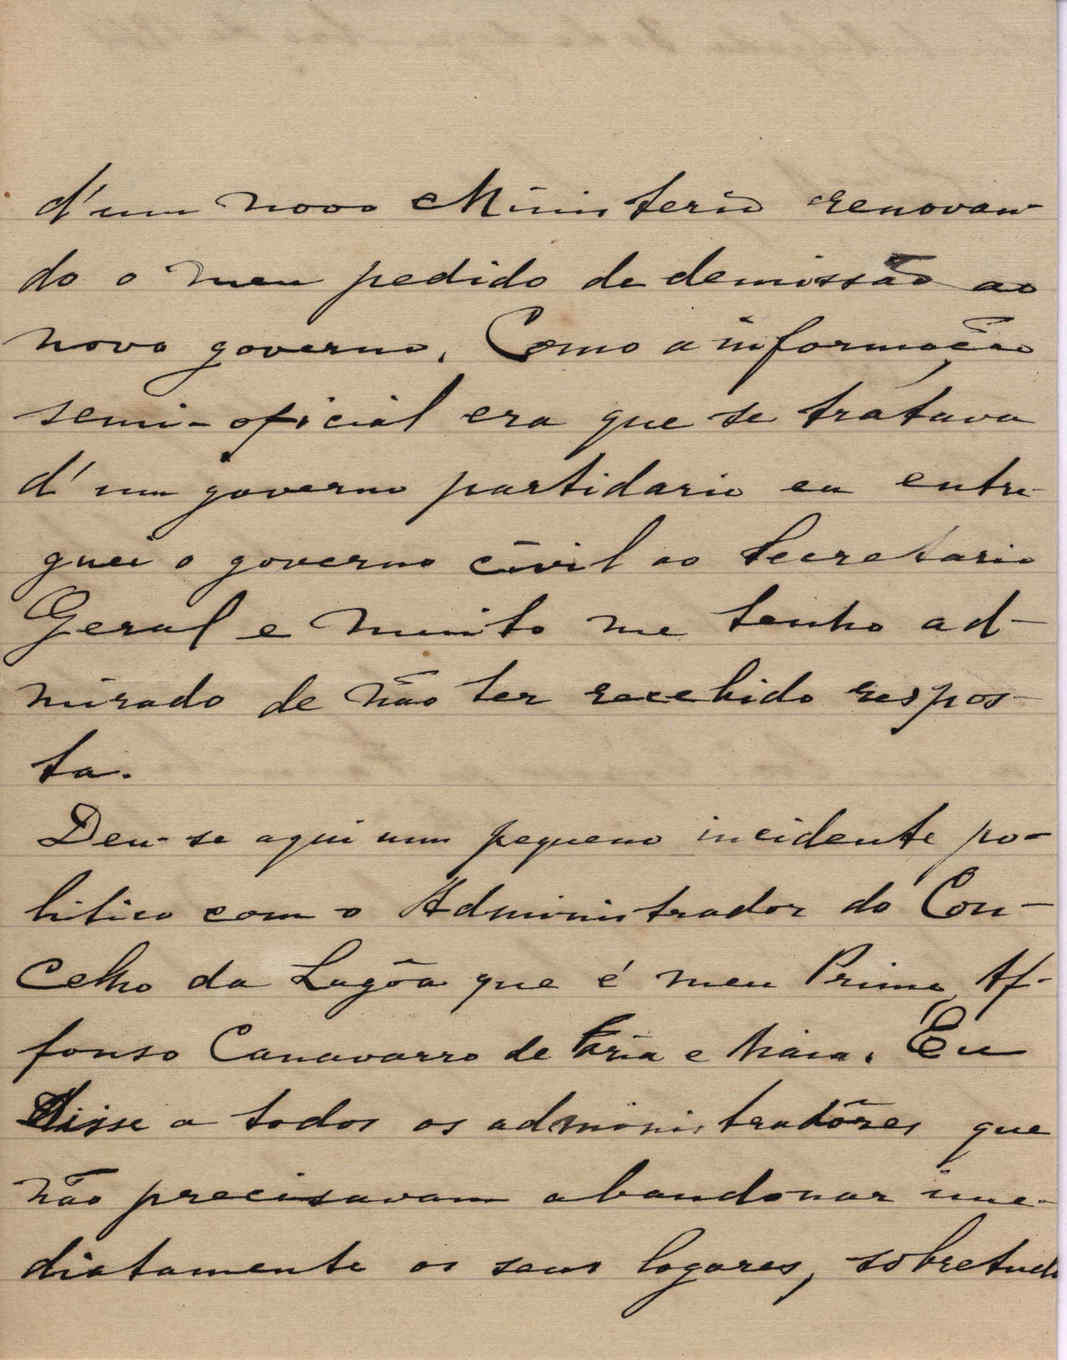 d'um novo Ministerio renovan-
do o meu pedido de demissão ao
novo governo. Como a informação
semi-oficial era que se tratava
d'um governo partidario eu entre-
guei o governo civil ao Secretario
Geral e muito me tenho ad-
mirado de não ter recebido respos-
ta.
Deu-se aqui um pequeno incidente po-
litico com o Administrador do Con-
celho da Lagôa que é meu Primo Af-
fonso Canavarro de Faria e Maia. Eu
disse a todos os administradôres que
não precisavam abandonar ime-
diatamente os seus logares, sobretudo